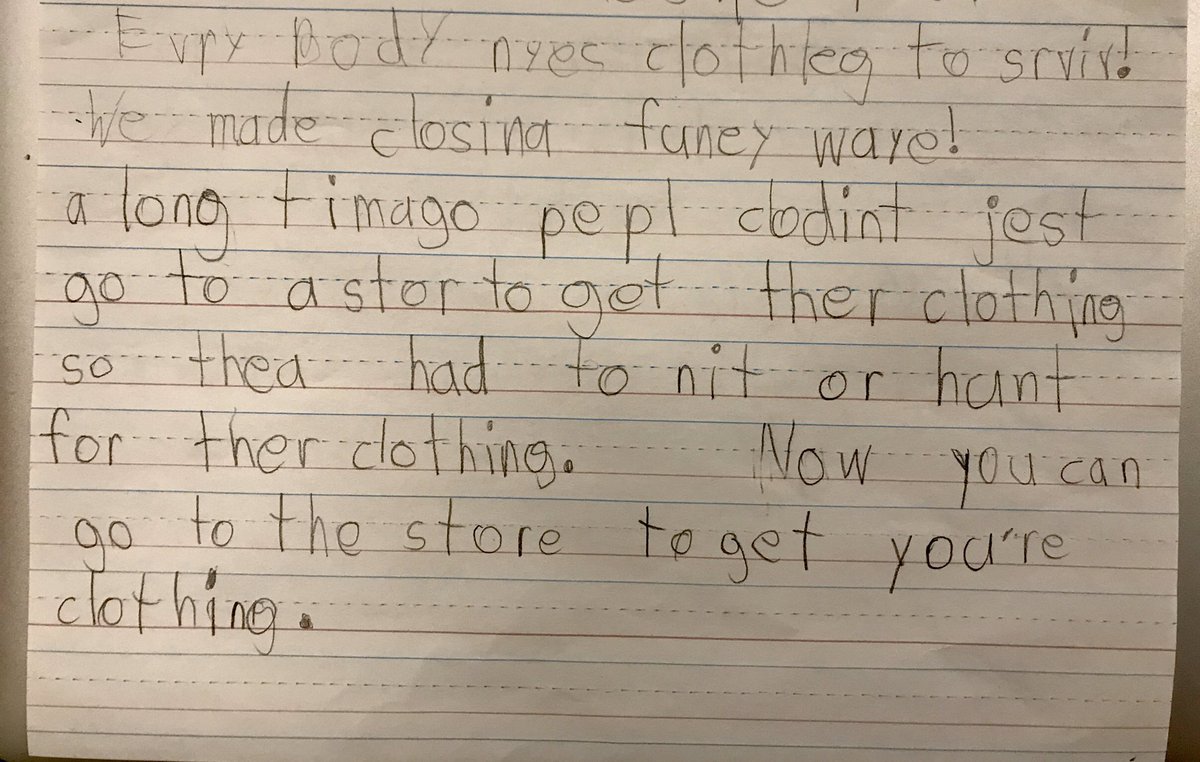 Evry Body nyes clothleg to srviv!
We made closing funey waye!
a long timago pepl clodint jest
go to a stor to get ther clothing
so thea had to nit or hunt
for ther clothing. Now you can
go to the store to get you're
clothing.